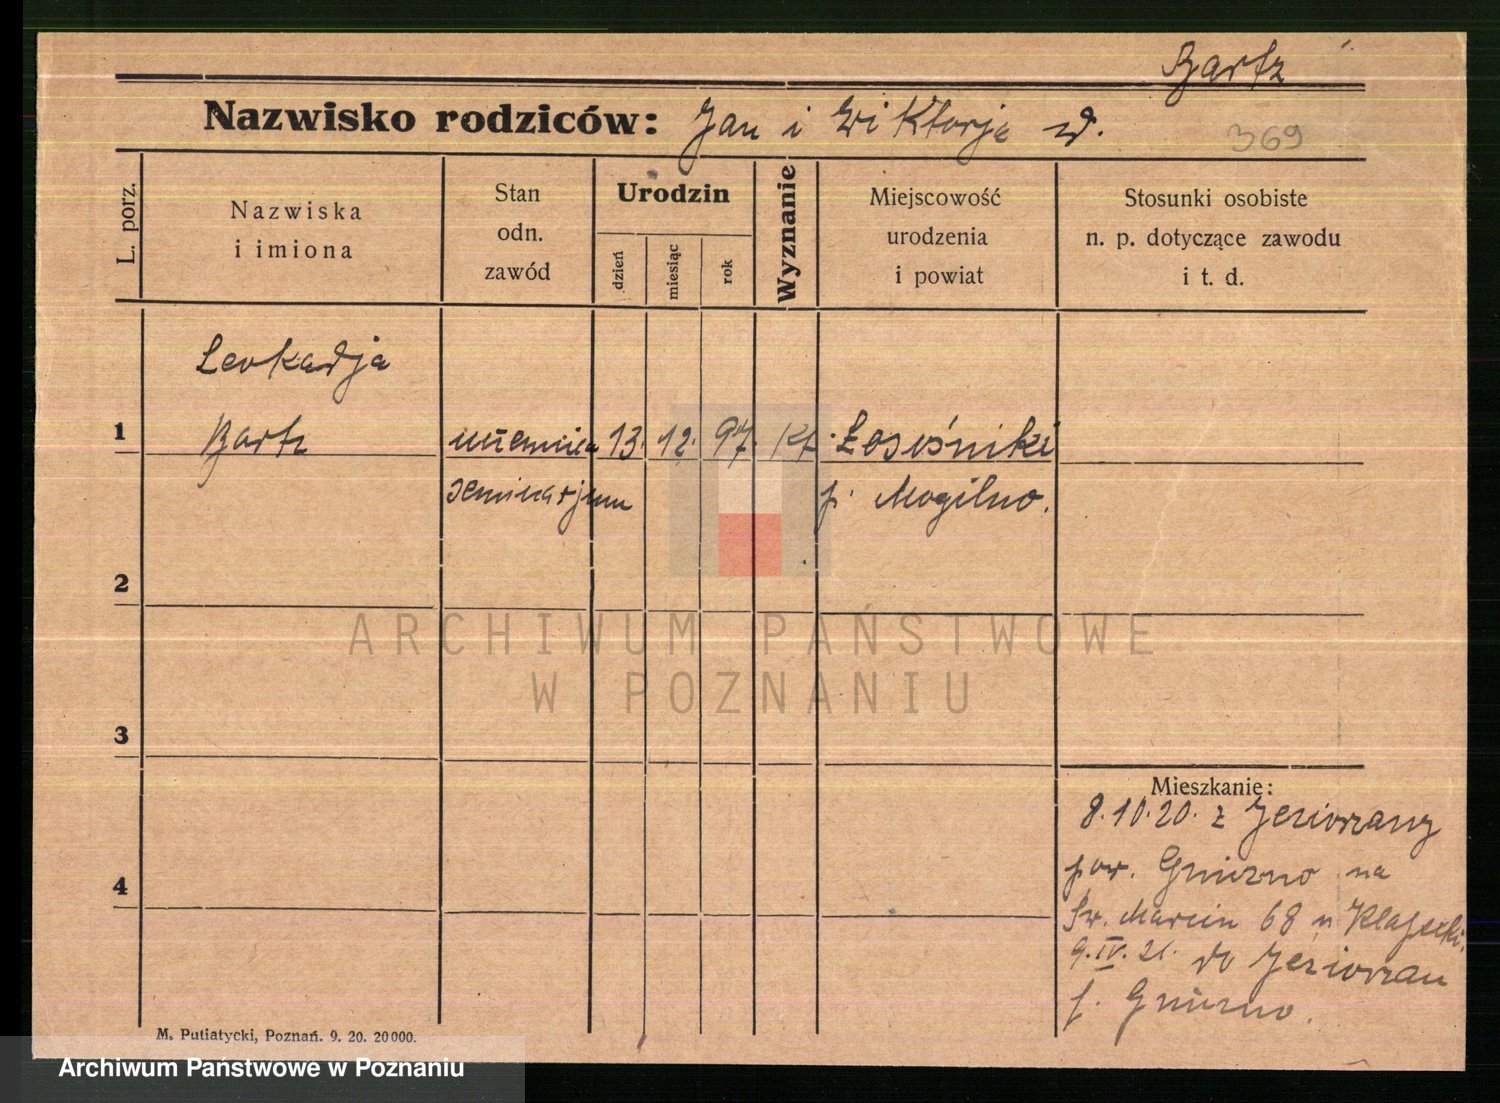 Bartz
Nazwisko rodziców: Jan i Wiktorja
369
L. porz.
Nazwiska
i imiona
Stan
odn.
zawód
Urodzin
dzień
miesiąc
rok
Wyznanie
Miejscowość
urodzenia
i powiat
Stosunki osobiste
n. p. dotyczące zawodu
i t. d.
Leokadja
1 Bartz uczenica 13. 12. 97. kt. Łosośniki
seminarjum p. Mogilno.
2
3
4
Mieszkanie:
8.10.20. z Jeziorzany
pow. Gniezno na
Św. Marcin 68 u
9.IV.21. do Jeziorzan
p. Gniezno.
M. Putiatycki, Poznań. 9. 20. 20000.
ARCHIWUM PAŃSTWOWE
W POZNANIU
Archiwum Państwowe w Poznaniu